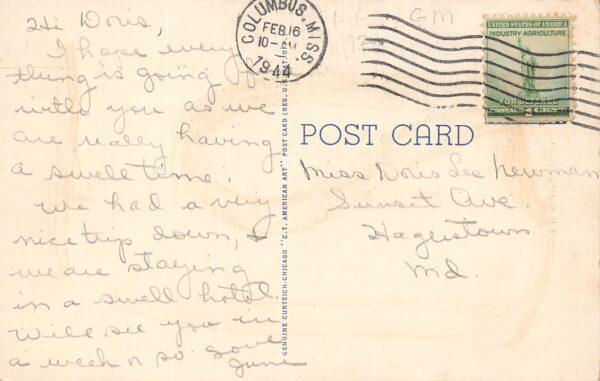 Hi Doris,
I hope every
thing is going
with you as we
are really having
a swell time.
We had a very
nice trip down, &
we are staying
in a swell hotel.
Will see you in
a week or so. Love
June
GENUINE CURTEICH-CHICAGO "C.T. AMERICAN ART" POST CARD (REG. U.S. PAT. OFF.)
COLUMBUS, MISS.
FEB 16
1944
UNITED STATES OF AMERICA
INDUSTRY AGRICULTURE
FOR DEFENSE
POST CARD
Miss Doris Lee Newman
Sunset Ave.
Hagerstown
Md.